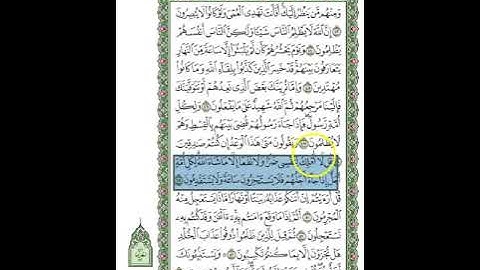 وَمِنْهُم مَّن يَنظُرُ إِلَيْكَ أَفَأَنتَ تَهْدِي الْعُمْيَ وَلَوْ كَانُوا لَا يُبْصِرُونَ
۝٤٣ إِنَّ اللَّهَ لَا يَظْلِمُ النَّاسَ شَيْئًا وَلَٰكِنَّ النَّاسَ أَنفُسَهُمْ
يَظْلِمُونَ ۝٤٤ وَيَوْمَ يَحْشُرُهُمْ كَأَن لَّمْ يَلْبَثُوا إِلَّا سَاعَةً مِّنَ النَّهَارِ
يَتَعَارَفُونَ بَيْنَهُمْ قَدْ خَسِرَ الَّذِينَ كَذَّبُوا بِلِقَاءِ اللَّهِ وَمَا كَانُوا
مُهْتَدِينَ ۝٤٥ وَإِمَّا نُرِيَنَّكَ بَعْضَ الَّذِي نَعِدُهُمْ أَوْ نَتَوَفَّيَنَّكَ
فَإِلَيْنَا مَرْجِعُهُمْ ثُمَّ اللَّهُ شَهِيدٌ عَلَىٰ مَا يَفْعَلُونَ ۝٤٦ وَلِكُلِّ
أُمَّةٍ رَّسُولٌ فَإِذَا جَاءَ رَسُولُهُمْ قُضِيَ بَيْنَهُم بِالْقِسْطِ وَهُمْ
لَا يُظْلَمُونَ ۝٤٧ وَيَقُولُونَ مَتَىٰ هَٰذَا الْوَعْدُ إِن كُنتُمْ صَادِقِينَ
۝٤٨ قُل لَّا أَمْلِكُ لِنَفْسِي ضَرًّا وَلَا نَفْعًا إِلَّا مَا شَاءَ اللَّهُ لِكُلِّ أُمَّةٍ
أَجَلٌ إِذَا جَاءَ أَجَلُهُمْ فَلَا يَسْتَأْخِرُونَ سَاعَةً وَلَا يَسْتَقْدِمُونَ ۝٤٩
قُلْ أَرَأَيْتُمْ إِنْ أَتَاكُمْ عَذَابُهُ بَيَاتًا أَوْ نَهَارًا مَّاذَا يَسْتَعْجِلُ مِنْهُ
الْمُجْرِمُونَ ۝٥٠ أَثُمَّ إِذَا مَا وَقَعَ آمَنتُم بِهِ آلْآنَ وَقَدْ كُنتُم بِهِ
تَسْتَعْجِلُونَ ۝٥١ ثُمَّ قِيلَ لِلَّذِينَ ظَلَمُوا ذُوقُوا عَذَابَ الْخُلْدِ
هَلْ تُجْزَوْنَ إِلَّا بِمَا كُنتُمْ تَكْسِبُونَ ۝٥٢ وَيَسْتَنبِئُونَكَ